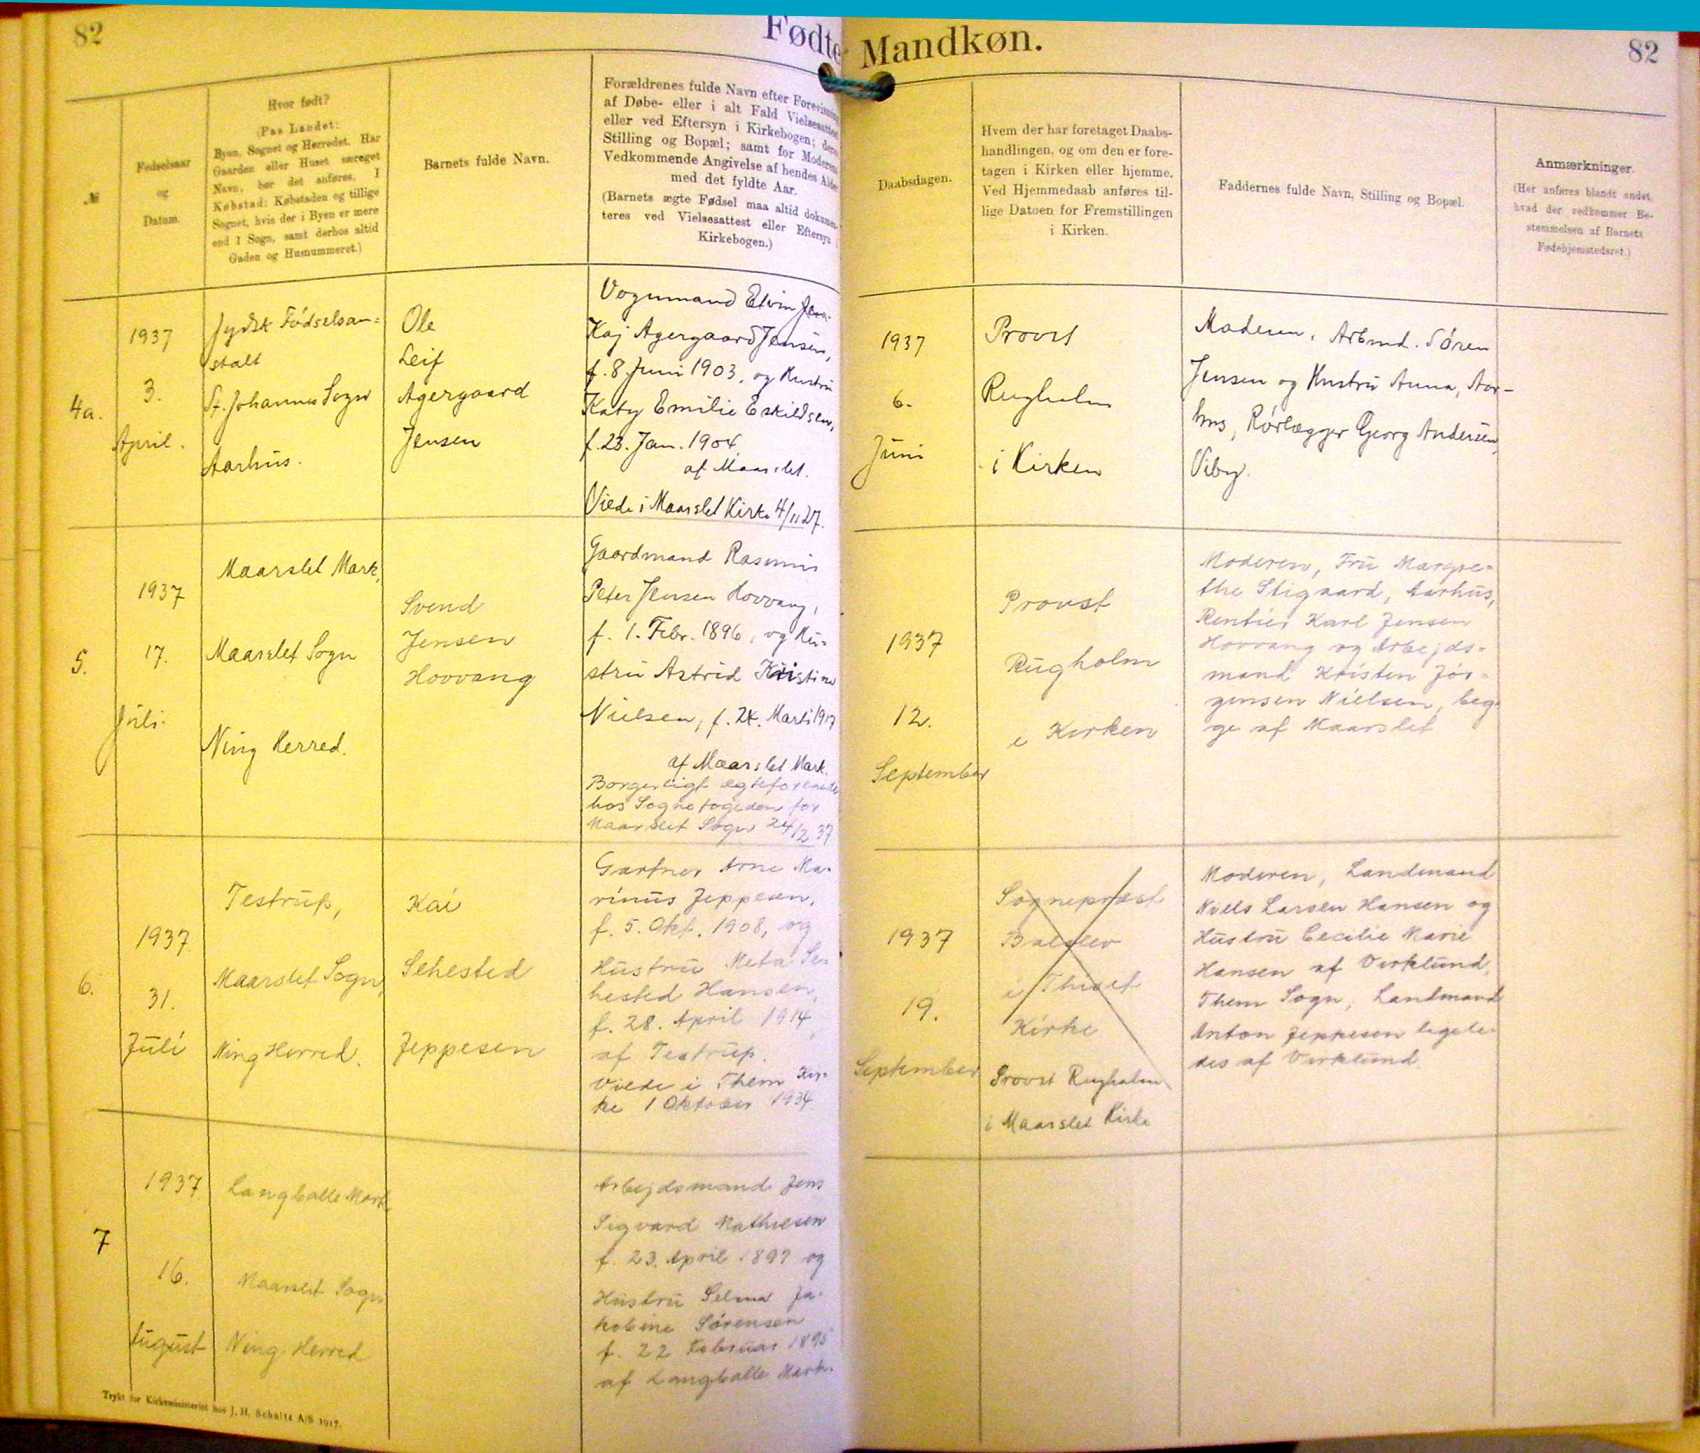 82
Fødte
Mandkøn.
82
№
Fødselsaar
og
Datum.
Hvor født?
(Paa Landet:
Byen, Sognet og Herredet. Har
Gaarden eller Huset særeget
Navn, bør det anføres. I
Købstad: Købstaden og tillige
Sognet, hvis der i Byen er mere
end 1 Sogn, samt derhos altid
Gaden og Husnummeret.)
Barnets fulde Navn.
Forældrenes fulde Navn efter Forevisning
af Døbe- eller i alt Fald Vielsesattest
eller ved Eftersyn i Kirkebogen; deres
Stilling og Bopæl; samt for Moderens
Vedkommende Angivelse af hendes Alder
med det fyldte Aar.
(Barnets ægte Fødsel maa altid dokumen-
teres ved Vielsesattest eller Eftersyn i
Kirkebogen.)
Daabsdagen.
Hvem der har foretaget Daabs-
handlingen, og om den er fore-
tagen i Kirken eller hjemme.
Ved Hjemmedaab anføres til-
lige Datoen for Fremstillingen
i Kirken.
Faddernes fulde Navn, Stilling og Bopæl.
Anmærkninger.
(Her anføres blandt andet,
hvad der vedkommer Be-
stemmelsen af Barnets
Fødehjemstedsret.)
4a.
1937
3.
April.
Jydsk Fødselsan=
stalt
St. Johannes Sogn
Aarhus.
Ole
Leif
Agergaard
Jensen
Vognmand Elvin Jens-
Kaj Agergaard Jensen,
f. 8 Juni 1903, og Hustru
Katy Emilie Eskildsen,
f. 23. Jan. 1904
af Maarslet.
Viede i Maarslet Kirke 4/11 27.
1937
6.
Juni
Provst
Rugholm
i Kirken
Moderen, Arbmd. Søren
Jensen og Hustru Anna, Aar-
hus, Rørlægger Georg Andersen,
Viby.
5.
1937
17.
Juli.
Maarslet Mark,
Maarslet Sogn
Ning Herred.
Svend
Jensen
Hovvang
Gaardmand Rasmus
Peter Jensen Hovvang,
f. 1. Febr. 1896, og Hu-
stru Astrid Kristine
Nielsen, f. 24. Marts 1917
af Maarslet Mark.
Borgerligt ægteforenede
hos Sognefogeden for
Maarslet Sogn 24/2 37
1937
12.
September
Provst
Rugholm
i Kirken
Moderen, Fru Margre-
the Stigaard, Aarhus,
Rentier Karl Jensen
Hovvang og Arbejds-
mand Kristen Jør-
gensen Nielsen, beg-
ge af Maarslet
6.
1937
31.
Juli
Testrup,
Maarslet Sogn,
Ning Herred.
Kai
Sehested
Jeppesen
Gartner Arne Ma-
rinus Jeppesen,
f. 5. Okt. 1908, og
Hustru Meta Se-
hested Hansen,
f. 28. April 1914,
af Testrup.
Viede i Them Kir-
ke 1 Oktober 1934
1937
19.
September
Sognepræst
Balslev
i Thiset
Kirke
Provst Rugholm
i Maarslet Kirke
Moderen, Landmand
Niels Larsen Hansen og
Hustru Cecilie Marie
Hansen af Virklund,
Them Sogn, Landmand
Anton Jeppesen ligele-
des af Virklund.
7
1937
16.
August
Langballe Mark,
Maarslet Sogn
Ning Herred
Arbejdsmand Jens
Sigvard Mathiesen
f. 23. April 1897 og
Hustru Selma Ja-
kobine Sørensen
f. 22 Februar 1895
af Langballe Mark.
Trykt for Kirkeministeriet hos J. H. Schultz A/S 1917.